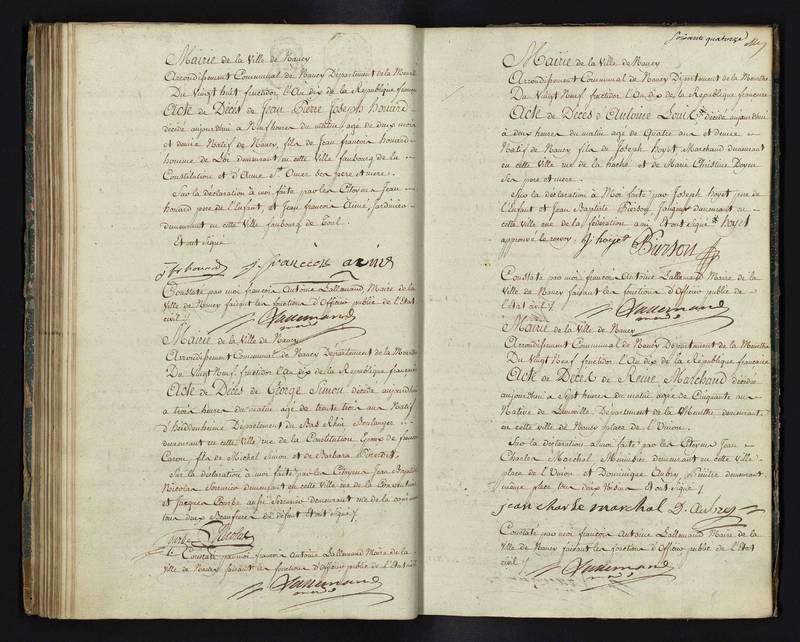 Mairie de la Ville de Nancy
Arrondissement Communal de Nancy Département de la Meurthe
Du Vingt huit fructidor l'An dix de la République française
Acte de Décès de Jean Pierre Joseph houard
décédé aujourdhui à Neuf heures du matin, agé de deux mois
et demie Natif de Nancy, fils de Jean françois houard
homme de Loi demeurant en cette Ville faubourg de la
Constitution et d'Anne St Omer ses pere et mere.
Sur la déclaration à moi faite par les Citoyens Jean
houard pere de l'enfant, et Jean françois Aimé, Jardinier
demeurant en cette Ville faubourg de Toul.
et ont signé
houard j. francois aimé
Constaté par moi françois Antoine Lallemand Maire de la
Ville de Nancy faisant les fonctions d'Officier public de l'Etat
civil
Lallemand
Mairie de la Ville de Nancy
Arrondissement Communal de Nancy Département de la Meurthe
Du Vingt Neuf fructidor l'An dix de la République française
Acte de Décès de George Simon décédé aujourdhui
à trois heures du matin agé de trente trois ans Natif
Département du Bas Rhin Boulanger
demeurant en cette Ville rue de la Constitution, Epoux de
Caron, fils de Michel Simon et de Barbara
Sur la déclaration à moi faite par les Citoyens Jean Baptiste
Nicolas demeurant en cette Ville rue de la
et Jacques demeurant rue de la
tous deux Beaufreres du défunt et ont signé
Nicolas
Constaté par moi françois Antoine Lallemand Maire de la
Ville de Nancy faisant les fonctions d'Officier public de l'Etat civil
Lallemand
Soixante quatorze
Mairie de la Ville de Nancy
Arrondissement Communal de Nancy Département de la Meurthe
Du Vingt Neuf fructidor l'An dix de la République française
Acte de Décès d'Antoine Louis décédé aujourdhui
à deux heures du matin agé de Quatre ans et demie
Natif de Nancy, fils de Joseph Hoyet Marchand demeurant
en cette Ville rue de la hache et de Marie Christine Doyen
ses pere et mere
Sur la déclaration à Moi faite par Joseph hoyet pere de
l'Enfant et Jean Baptiste demeurant en
cette Ville rue de la fédération ami et ont signé hoyet
approuvé le renvoy
Constaté par moi françois Antoine Lallemand Maire de la
Ville de Nancy faisant les fonctions d'Officier public de
l'Etat civil
Lallemand
Mairie de la Ville de Nancy
Arrondissement Communal de Nancy Département de la Meurthe
Du Vingt Neuf fructidor l'An dix de la République française
Acte de Décès de Reine Marchand décédée
aujourdhui à Sept heures du matin agée de Cinquante ans
Native de Lunéville Département de la Meurthe demeurant
en cette Ville de Nancy place de l'Union.
Sur la déclaration à moi faite par les Citoyens Jean
Charles Marchal Menuisier demeurant en cette Ville
place de l'Union et Dominique Aubry demeurant
même place tous deux Voisins et ont signé
jean charle marchal D. Aubry
Constaté par moi françois Antoine Lallemand Maire de la
Ville de Nancy faisant les fonctions d'Officier public de l'Etat
civil
Lallemand